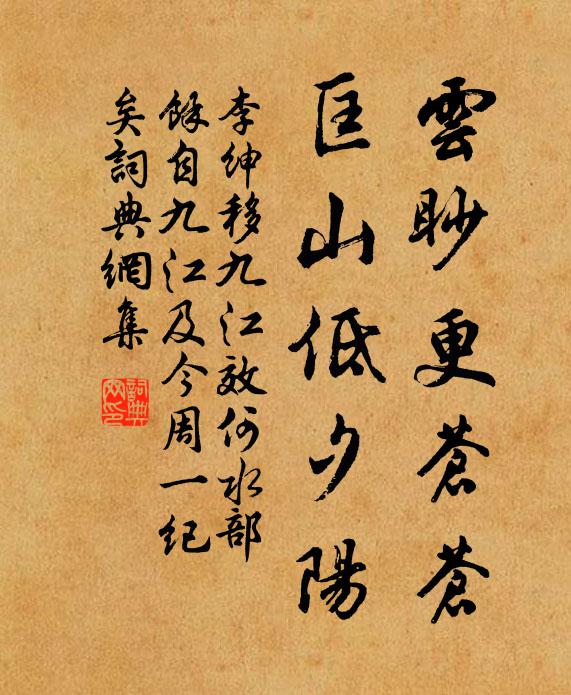 雲眇更蒼蒼
匡山低夕陽
李紳移九江效何水部
餘自九江及今周一紀
矣詞典網集
詞典网印